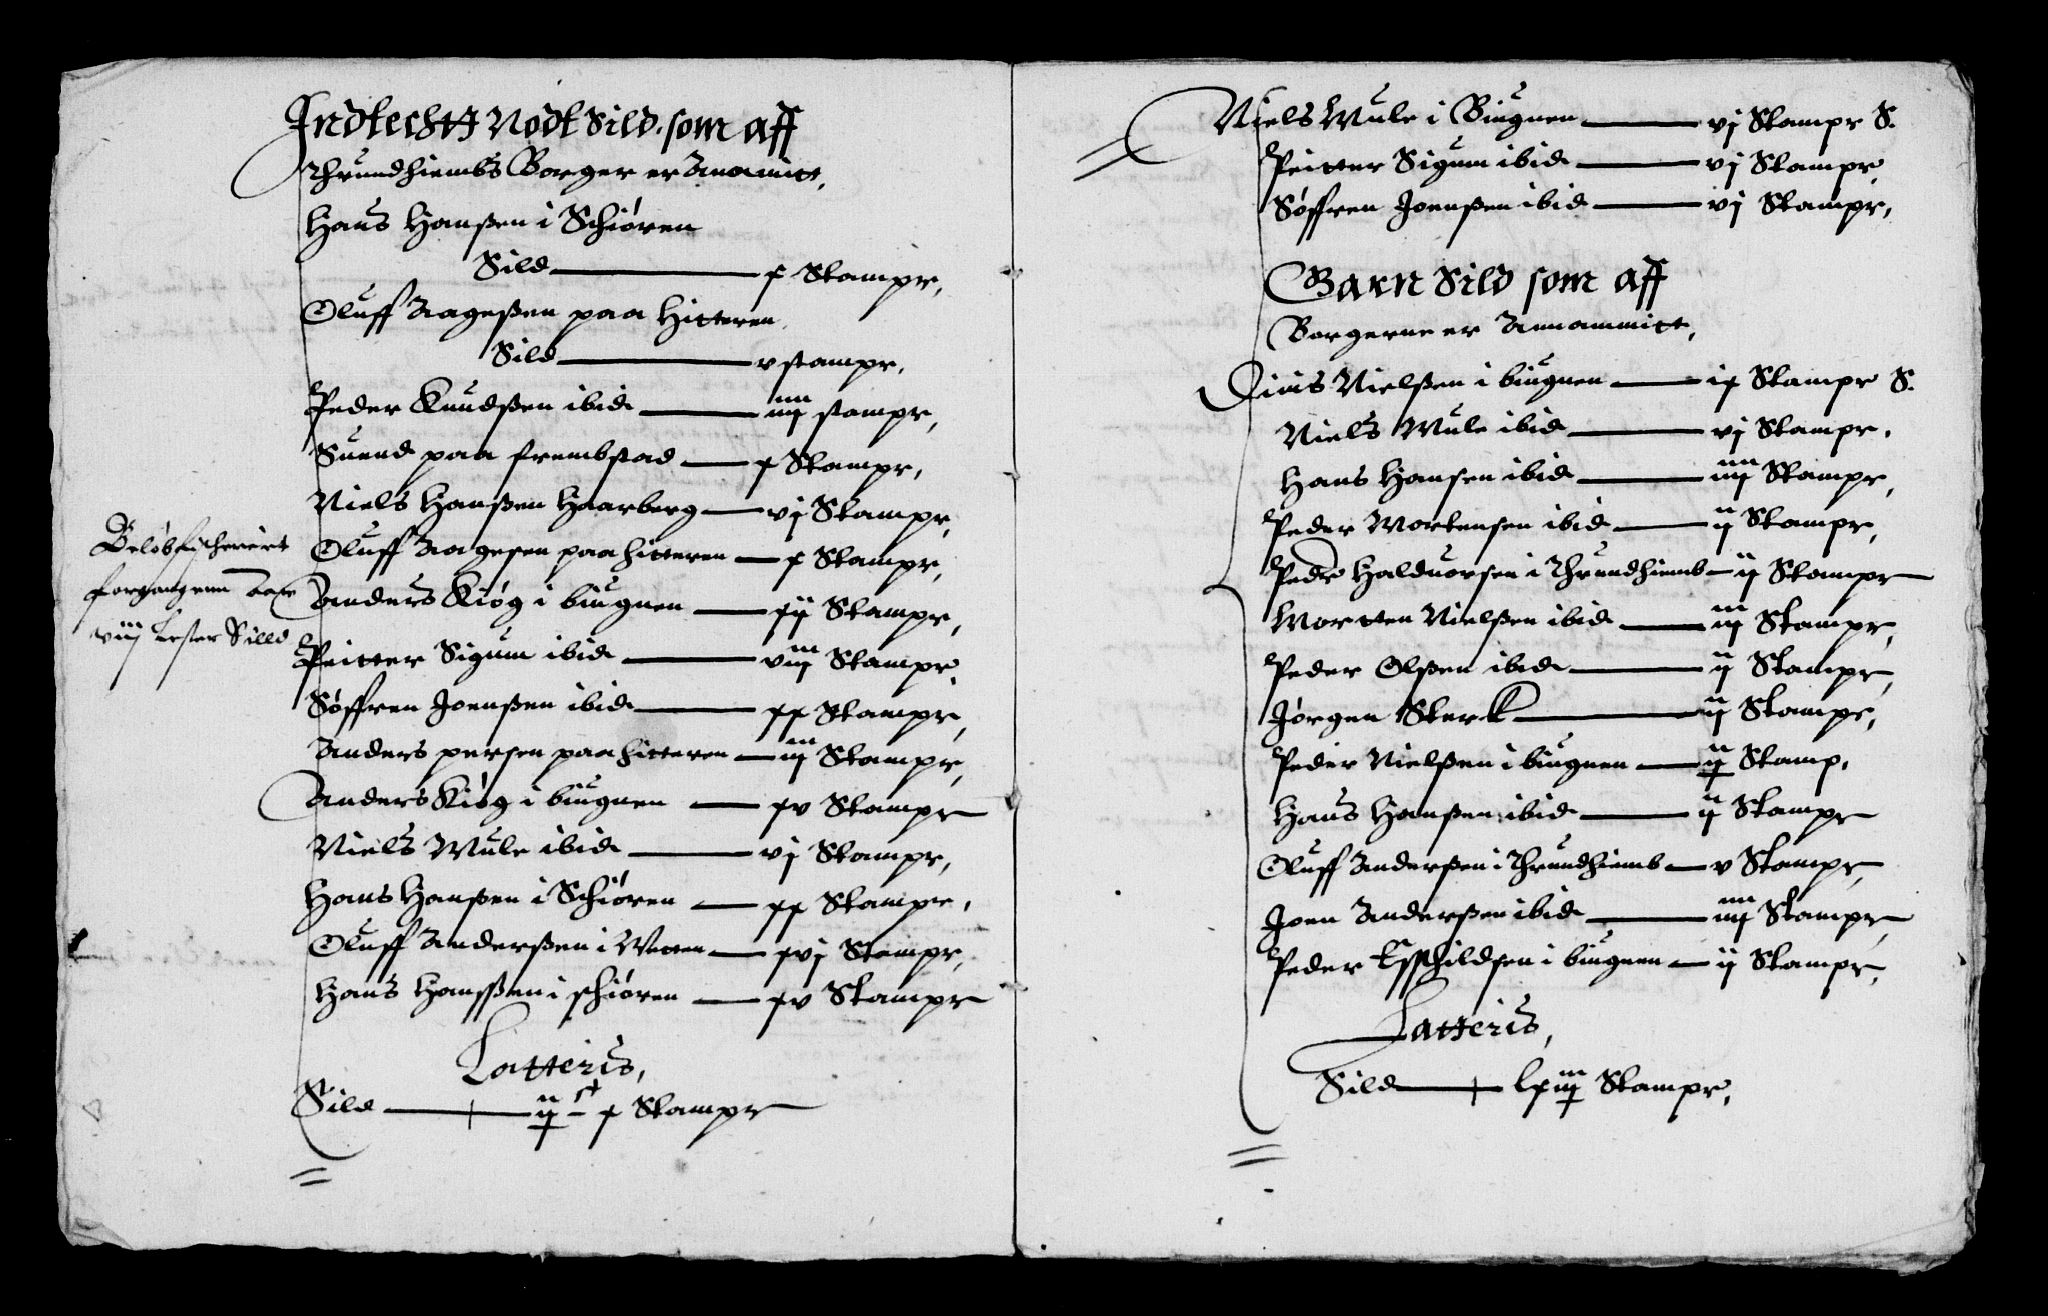 Indtechtt Nodt Sild som aff
Thrundhiembs Borger er Anamitt,
Hans Hanßen i Schiøren
Sild — x Stampr,
Oluff Aageßen paa Hitteren
Sild — v stampr,
Peder Knudßen ibid — iiij stampr,
Suend paa frembstad — x Stampr,
Niels Hanßen Haarberg — vj Stampr,
Oluff Aagesen paa hitteren — x Stampr,
Anders Kiøg i biugnen — xij Stampr,
Peitter Sigum ibid — viij Stampr,
Søffren Joenßen ibid — xx Stampr,
Anders persen paa hitteren — iij Stampr,
Anders Kiøg i biugnen — xv Stampr
Niels Mule ibid — vj Stampr,
Hans Hanßen i Schiøren — xx Stampr,
Oluff Anderßen i Wtten — xvj Stampr,
Hans Hansßen i schiøren — xv Stampr
Latteris,
Sild — ij c x Stampr
Beløb fischeriet
forgangenn Aar
viij Lester Silld
Niels Mule i Biugnen — vj Stampr S.
Peitter Sigum ibid — vj Stampr,
Søffren Joenßen ibid — vj Stampr,
Garn Sild som aff
Borgerne er Annammitt,
Dinis Nielßen i biugnen — ix Stampr S.
Niels Mule ibid — vj Stampr,
Hans Hansen ibid — iiij Stampr,
Peder Mortensen ibid — ij Stampr,
Peder Halduorsen i Thrundhiemb — ij Stampr
Mortten Nielßen ibid — iij Stampr,
Peder Olßen ibid — ij Stampr,
Jørgen Sterk — ij Stampr,
Peder Nielßen i biugnen — ij Stamp,
Hans Hanßen ibid — ij Stampr
Oluff Anderßen i Thrundhiemb — v Stampr,
Joen Anderßen ibid — iiij Stampr,
Peder Esschildsen i biugnen — ij Stampr,
Latteris,
Sild — lxiij Stampr,